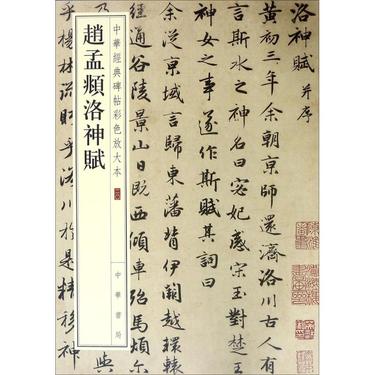 洛神賦 并序
黃初三年余朝京師還濟洛川古人有
言斯水之神名曰宓妃感宋玉對楚王
神女之事遂作斯賦其詞曰
余從京域言歸東藩背伊闕越轘轅
經通谷陵景山日既西傾車殆馬煩尔
與
中華經典碑帖彩色放大本
中華書局
趙孟頫洛神賦
乎楊林流眄乎洛川於是精移神